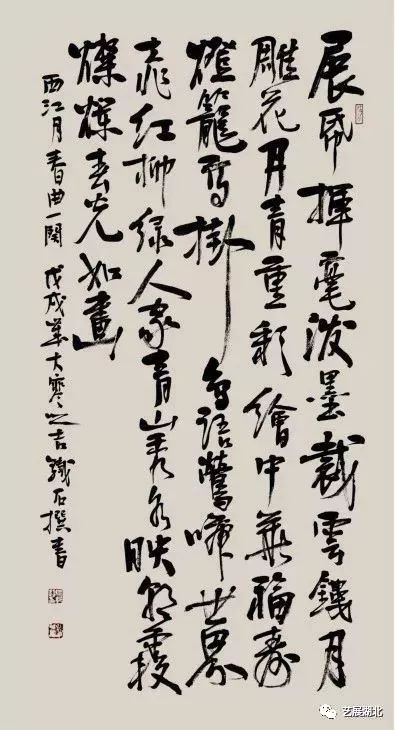 展帋揮毫潑墨裁雲鏤月
雕花丹青重彩繪中華福壽
燈籠高掛 鳥語鶯啼世界
桃红柳绿人家青山秀水映朝霞
燦爛春光如畫
西江月春曲一闋 戊戌年大寒之吉鐵石撰書
艺展湖北